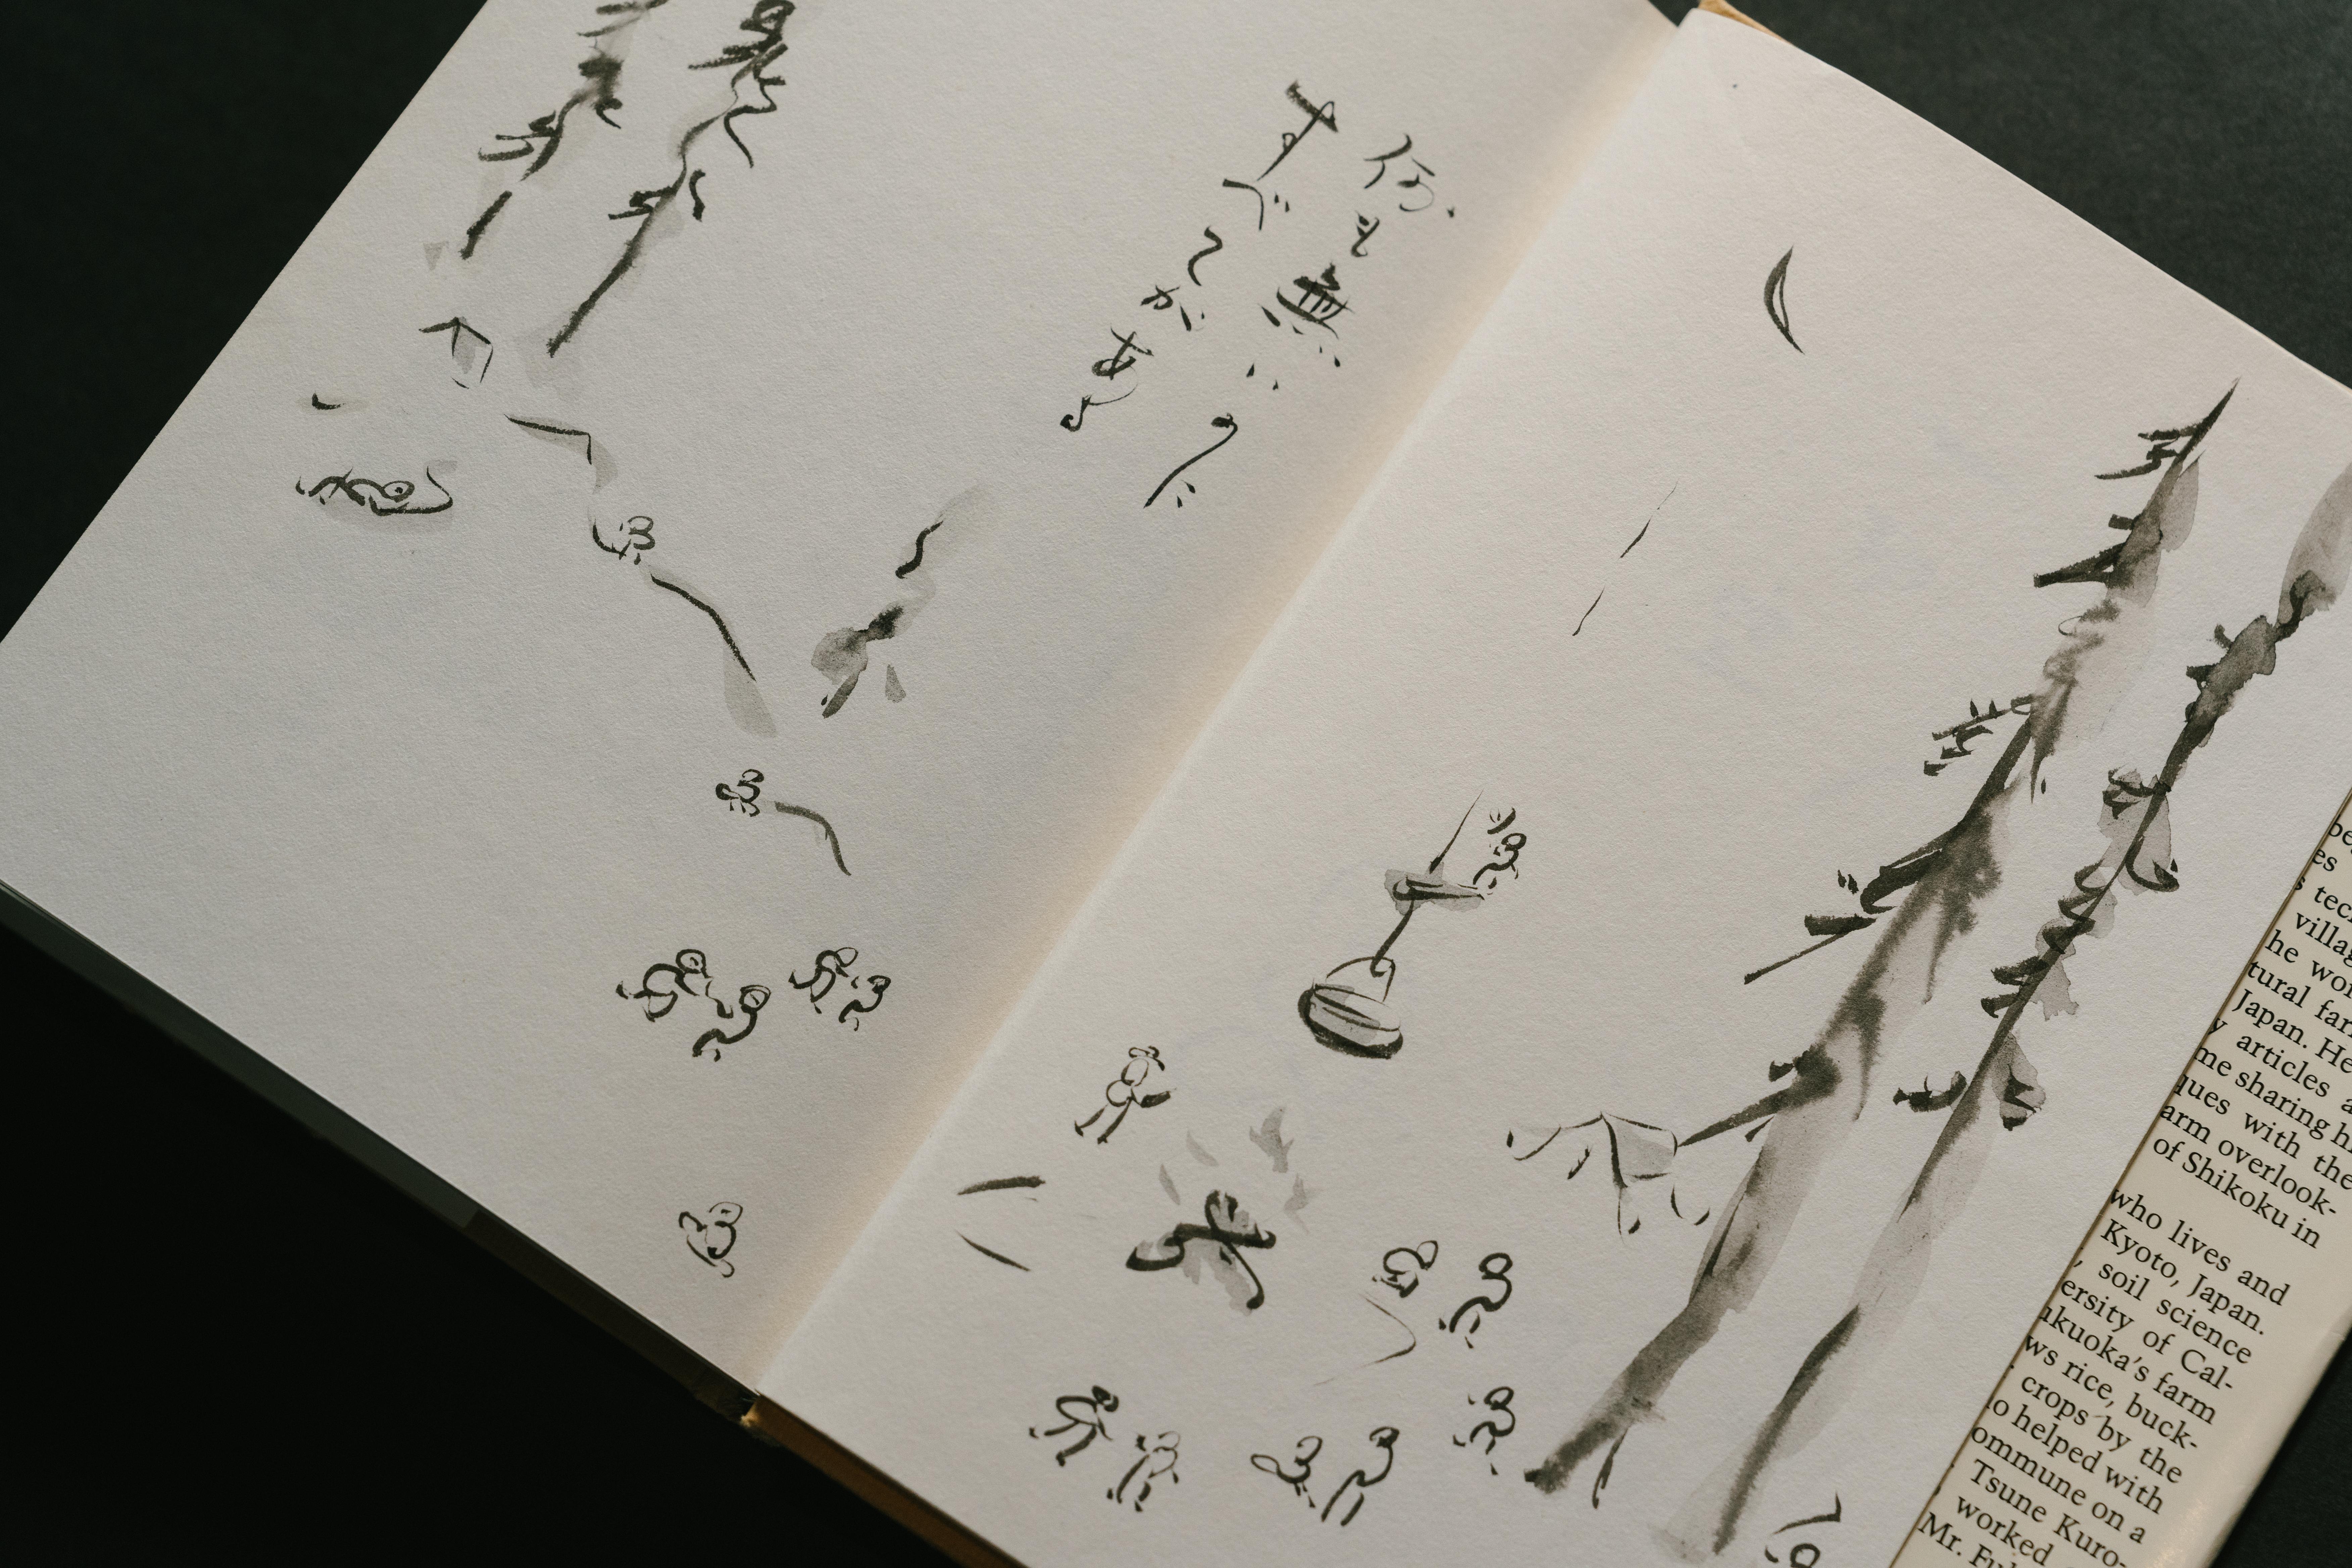 何も無いのに
すべてがある
tural far
Japan. He
articles
me sharing
ques with the
arm overlook-
of Shikoku in
who lives and
Kyoto, Japan.
soil science
ersity of Cal-
ukuoka's farm
ws rice, buck-
crops by the
o helped with
ommune on a
Tsune Kuro-
worked
Mr. Fu